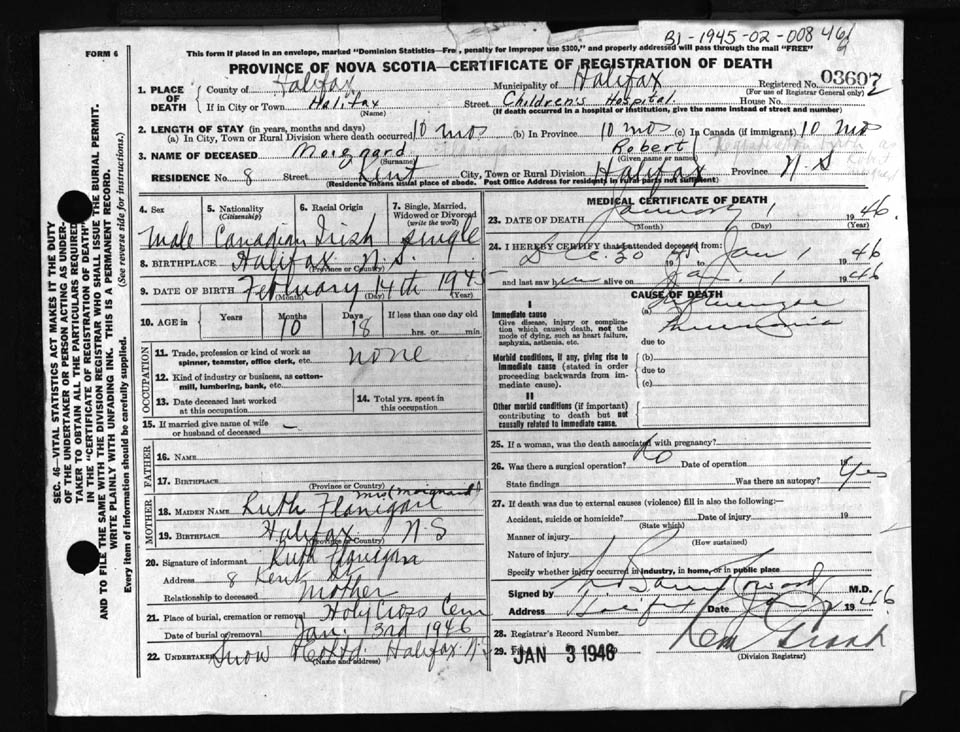 B1-1945-02-008461
FORM 6
This form if placed in an envelope, marked "Dominion Statistics—Free, penalty for improper use $300," and properly addressed will pass through the mail "FREE"
PROVINCE OF NOVA SCOTIA—CERTIFICATE OF REGISTRATION OF DEATH
1. PLACE OF DEATH County of Halifax Municipality of Halifax Registered No. 03607
(For use of Registrar General only)
If in City or Town Halifax Street Children's Hospital House No.
(Name) (If death occurred in a hospital or institution, give the name instead of street and number)
2. LENGTH OF STAY (in years, months and days)
(a) In City, Town or Rural Division where death occurred 10 mos (b) In Province 10 mos (c) In Canada (if immigrant) 10 mos
3. NAME OF DECEASED Moignard Flanigan Robert Registration Birth as Robert
(Surname) (Given name or names)
RESIDENCE No. 8 Street Kent City, Town or Rural Division Halifax Province N.S
(Residence means usual place of abode. Post Office Address for residents in rural parts not sufficient)
4. Sex Male
5. Nationality (Citizenship) Canadian
6. Racial Origin Irish
7. Single, Married, Widowed or Divorced (write the word) single
8. BIRTHPLACE Halifax N.S.
(Province or Country)
9. DATE OF BIRTH February 14th 1945
(Month) (Day) (Year)
10. AGE in Years Months 10 Days 18 If less than one day old
hrs. or min.
OCCUPATION
11. Trade, profession or kind of work as spinner, teamster, office clerk, etc. none
12. Kind of industry or business, as cotton-mill, lumbering, bank, etc.
13. Date deceased last worked at this occupation
14. Total yrs. spent in this occupation
15. If married give name of wife or husband of deceased –
FATHER
16. NAME
17. BIRTHPLACE
(Province or Country)
MOTHER
18. MAIDEN NAME Ruth Flanigan Mrs (Moignard)
19. BIRTHPLACE Halifax N S
(Province or Country)
20. Signature of informant Ruth Flanigan
Address 8 Kent St
Relationship to deceased Mother
21. Place of burial, cremation or removal Holy Cross Cem
Date of burial or removal Jan. 3rd 1946
22. UNDERTAKER Snow & Co Ltd. Halifax N.S
(Name and address)
MEDICAL CERTIFICATE OF DEATH
23. DATE OF DEATH January 1 1946.
(Month) (Day) (Year)
24. I HEREBY CERTIFY that I attended deceased from:
Dec. 30 1945 to Jan 1 1946
and last saw him alive on Ja. 1 1946
CAUSE OF DEATH
I
Immediate cause
Give disease, injury or complication which caused death, not the mode of dying, such as heart failure, asphyxia, asthenia, etc.
(a) Influenzae Pneumonia
due to
Morbid conditions, if any, giving rise to immediate cause (stated in order proceeding backwards from immediate cause).
(b)
due to
(c)
II
Other morbid conditions (if important) contributing to death but not causally related to immediate cause.
25. If a woman, was the death associated with pregnancy?
26. Was there a surgical operation? No Date of operation
State findings Was there an autopsy? Yes
27. If death was due to external causes (violence) fill in also the following:—
Accident, suicide or homicide? Date of injury 19
(State which)
Manner of injury
(How sustained)
Nature of injury
Specify whether injury occurred in industry, in home, or in public place
Signed by M.D.
Address Halifax Date Jan 1946
28. Registrar's Record Number
29. Filed JAN 3 1946
(Division Registrar)
SEC. 46—VITAL STATISTICS ACT MAKES IT THE DUTY
OF THE UNDERTAKER OR PERSON ACTING AS UNDER-
TAKER TO OBTAIN ALL THE PARTICULARS REQUIRED
IN THE "CERTIFICATE OF REGISTRATION OF DEATH"
AND TO FILE THE SAME WITH THE DIVISION REGISTRAR WHO SHALL ISSUE THE BURIAL PERMIT.
WRITE PLAINLY WITH UNFADING INK. THIS IS A PERMANENT RECORD.
Every item of information should be carefully supplied. (See reverse side for instructions.)